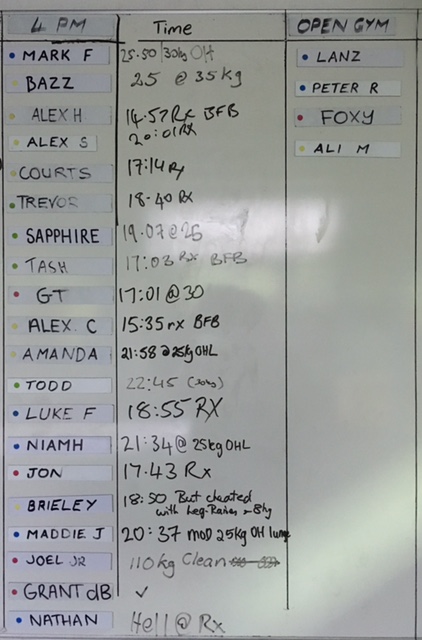 4 PM Time OPEN GYM
MARK F 25:50 30kg OH LANZ
BAZZ 25 @ 35kg PETER R
ALEX H 14:57 Rx BFB FOXY
ALEX S 20:01 RX ALI M
COURTS 17:14 Rx
TREVOR 18.40 Rx
SAPPHIRE 19.07 @ 25
TASH 17:03 Rx BFB
GT 17:01 @ 30
ALEX. C 15:35 rx BFB
AMANDA 21:58 @ 25kg OHL
TODD 22:45 (30kg)
LUKE F 18:55 RX
NIAMH 21:34 @ 25kg OHL
JON 17.43 Rx
BRIELEY 18:50 But cheated
with Leg-Raises - 8kg
MADDIE J 20:37 mod 25kg OH lunge
JOEL JR 110kg Clean
GRANT dB ✓
NATHAN Hell @ Rx